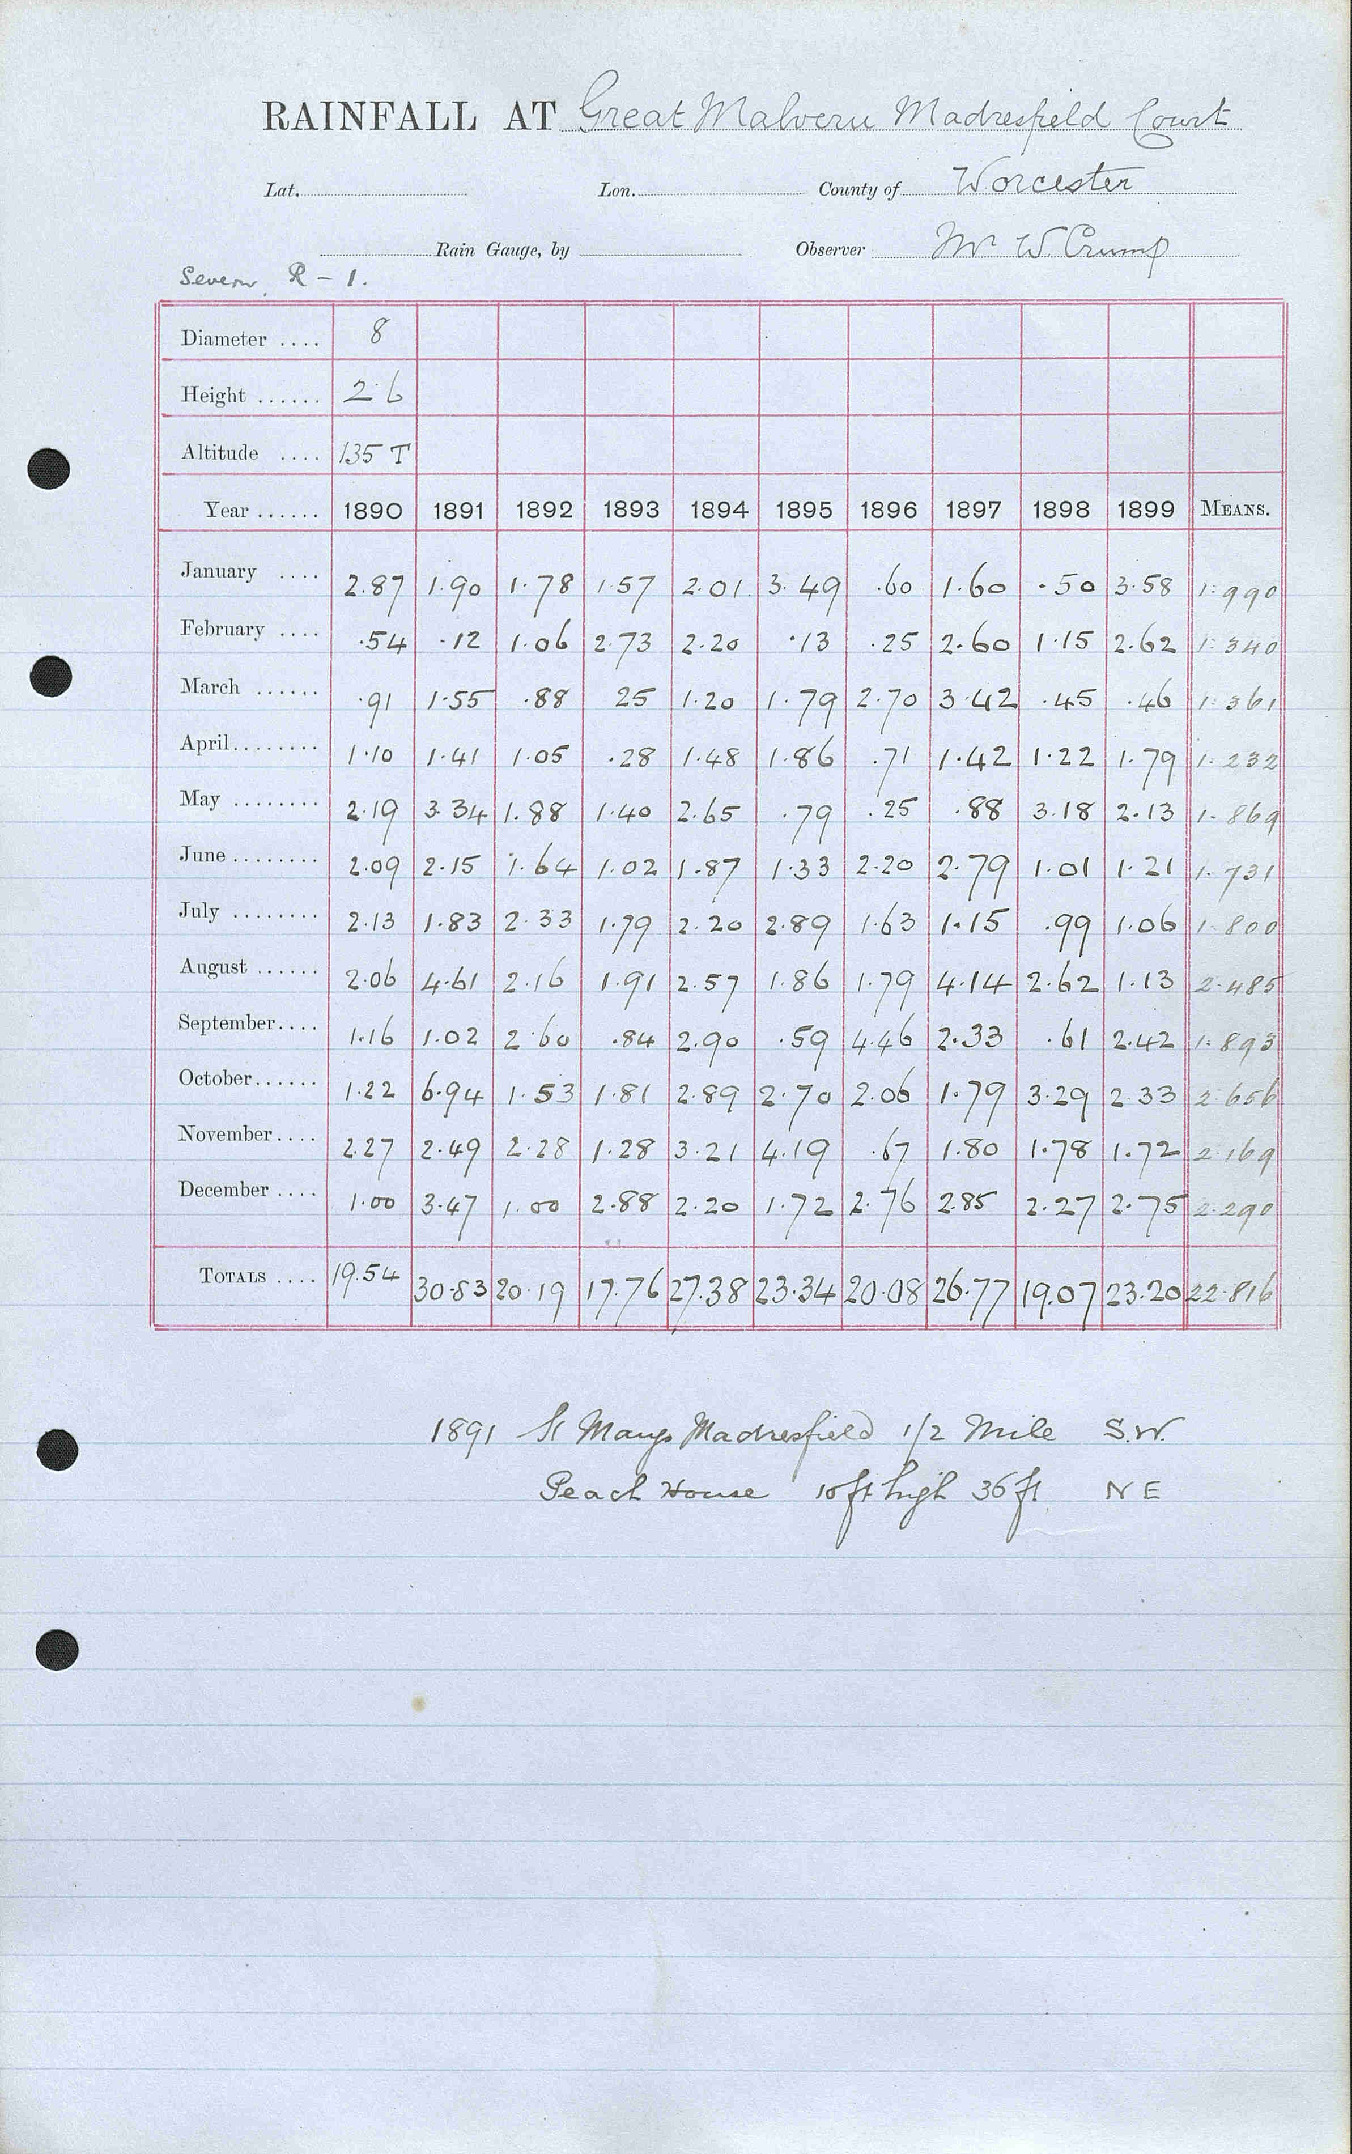 RAINFALL AT Great Malvern Madresfield Court
Lat. Lon. County of Worcester
Rain Gauge, by Observer Mr W. Crump
Severn R - 1.
Diameter .... 8
Height ...... 2 6
Altitude .... 135 T
Year ...... 1890 1891 1892 1893 1894 1895 1896 1897 1898 1899 MEANS.
January .... 2.87 1.90 1.78 1.57 2.01 3.49 .60 1.60 .50 3.58 1.990
February .... .54 .12 1.06 2.73 2.20 .13 .25 2.60 1.15 2.62 1.340
March ...... .91 1.55 .88 25 1.20 1.79 2.70 3.42 .45 .46 1.361
April........ 1.10 1.41 1.05 .28 1.48 1.86 .71 1.42 1.22 1.79 1.232
May ........ 2.19 3.34 1.88 1.40 2.65 .79 .25 .88 3.18 2.13 1.869
June ........ 2.09 2.15 1.64 1.02 1.87 1.33 2.20 2.79 1.01 1.21 1.731
July ........ 2.13 1.83 2.33 1.79 2.20 2.89 1.63 1.15 .99 1.06 1.800
August ...... 2.06 4.61 2.16 1.91 2.57 1.86 1.79 4.14 2.62 1.13 2.485
September.... 1.16 1.02 2.60 .84 2.90 .59 4.46 2.33 .61 2.42 1.893
October...... 1.22 6.94 1.53 1.81 2.89 2.70 2.06 1.79 3.29 2.33 2.656
November.... 2.27 2.49 2.28 1.28 3.21 4.19 .67 1.80 1.78 1.72 2.169
December .... 1.00 3.47 1.00 2.88 2.20 1.72 2.76 2.85 2.27 2.75 2.290
TOTALS .... 19.54 30.83 20.19 17.76 27.38 23.34 20.08 26.77 19.07 23.20 22.816
1891 St Marys Madresfield 1/2 Mile S.W.
Peach House 10 ft high 36 ft N E